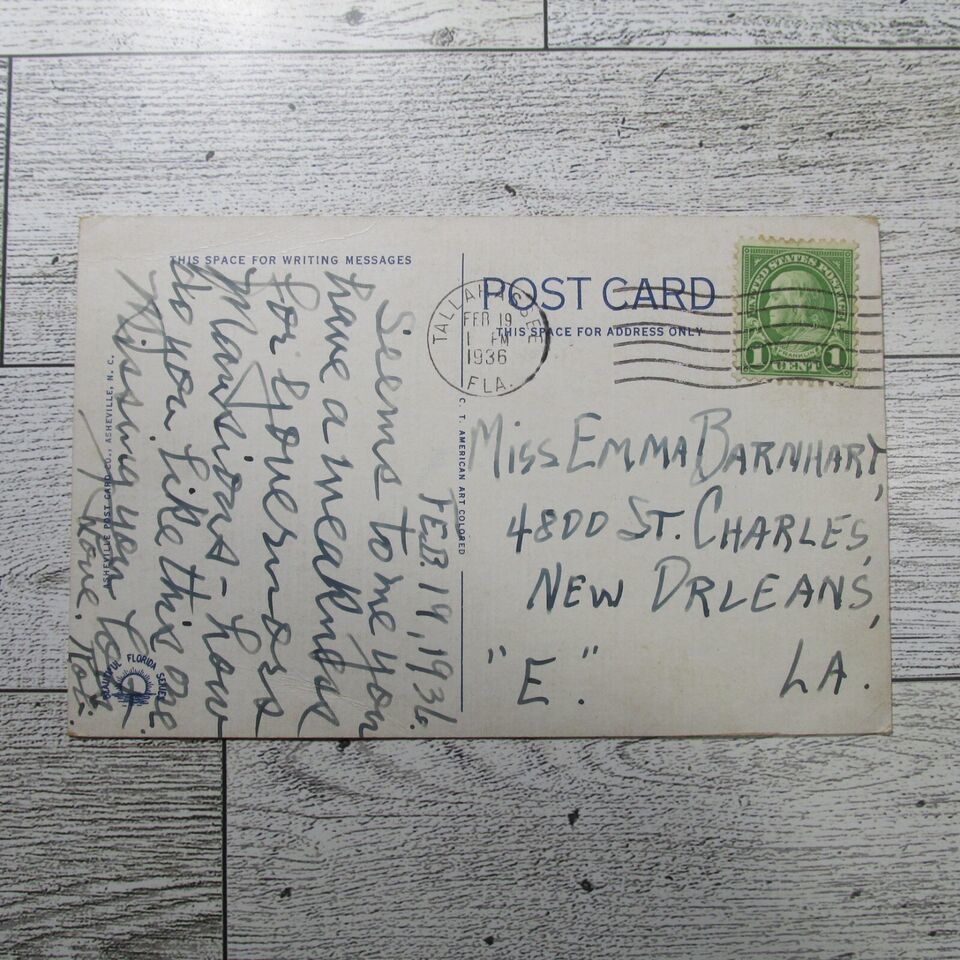 THIS SPACE FOR WRITING MESSAGES
FEB. 19, 1936.
Seems to me you
have a weakness
for Governors
Mansions - how
do you like this one
Missing you lots
Love,
ASHEVILLE POST CARD CO., ASHEVILLE, N. C.
BEAUTIFUL FLORIDA SERIES
C. T. AMERICAN ART COLORED
POST CARD
THIS SPACE FOR ADDRESS ONLY
TALLAHASSEE
FEB 19
1 PM
1936
FLA.
UNITED STATES POSTAGE
FRANKLIN
1 CENT 1
MISS EMMA BARNHART,
4800 ST. CHARLES,
NEW ORLEANS,
"E." LA.